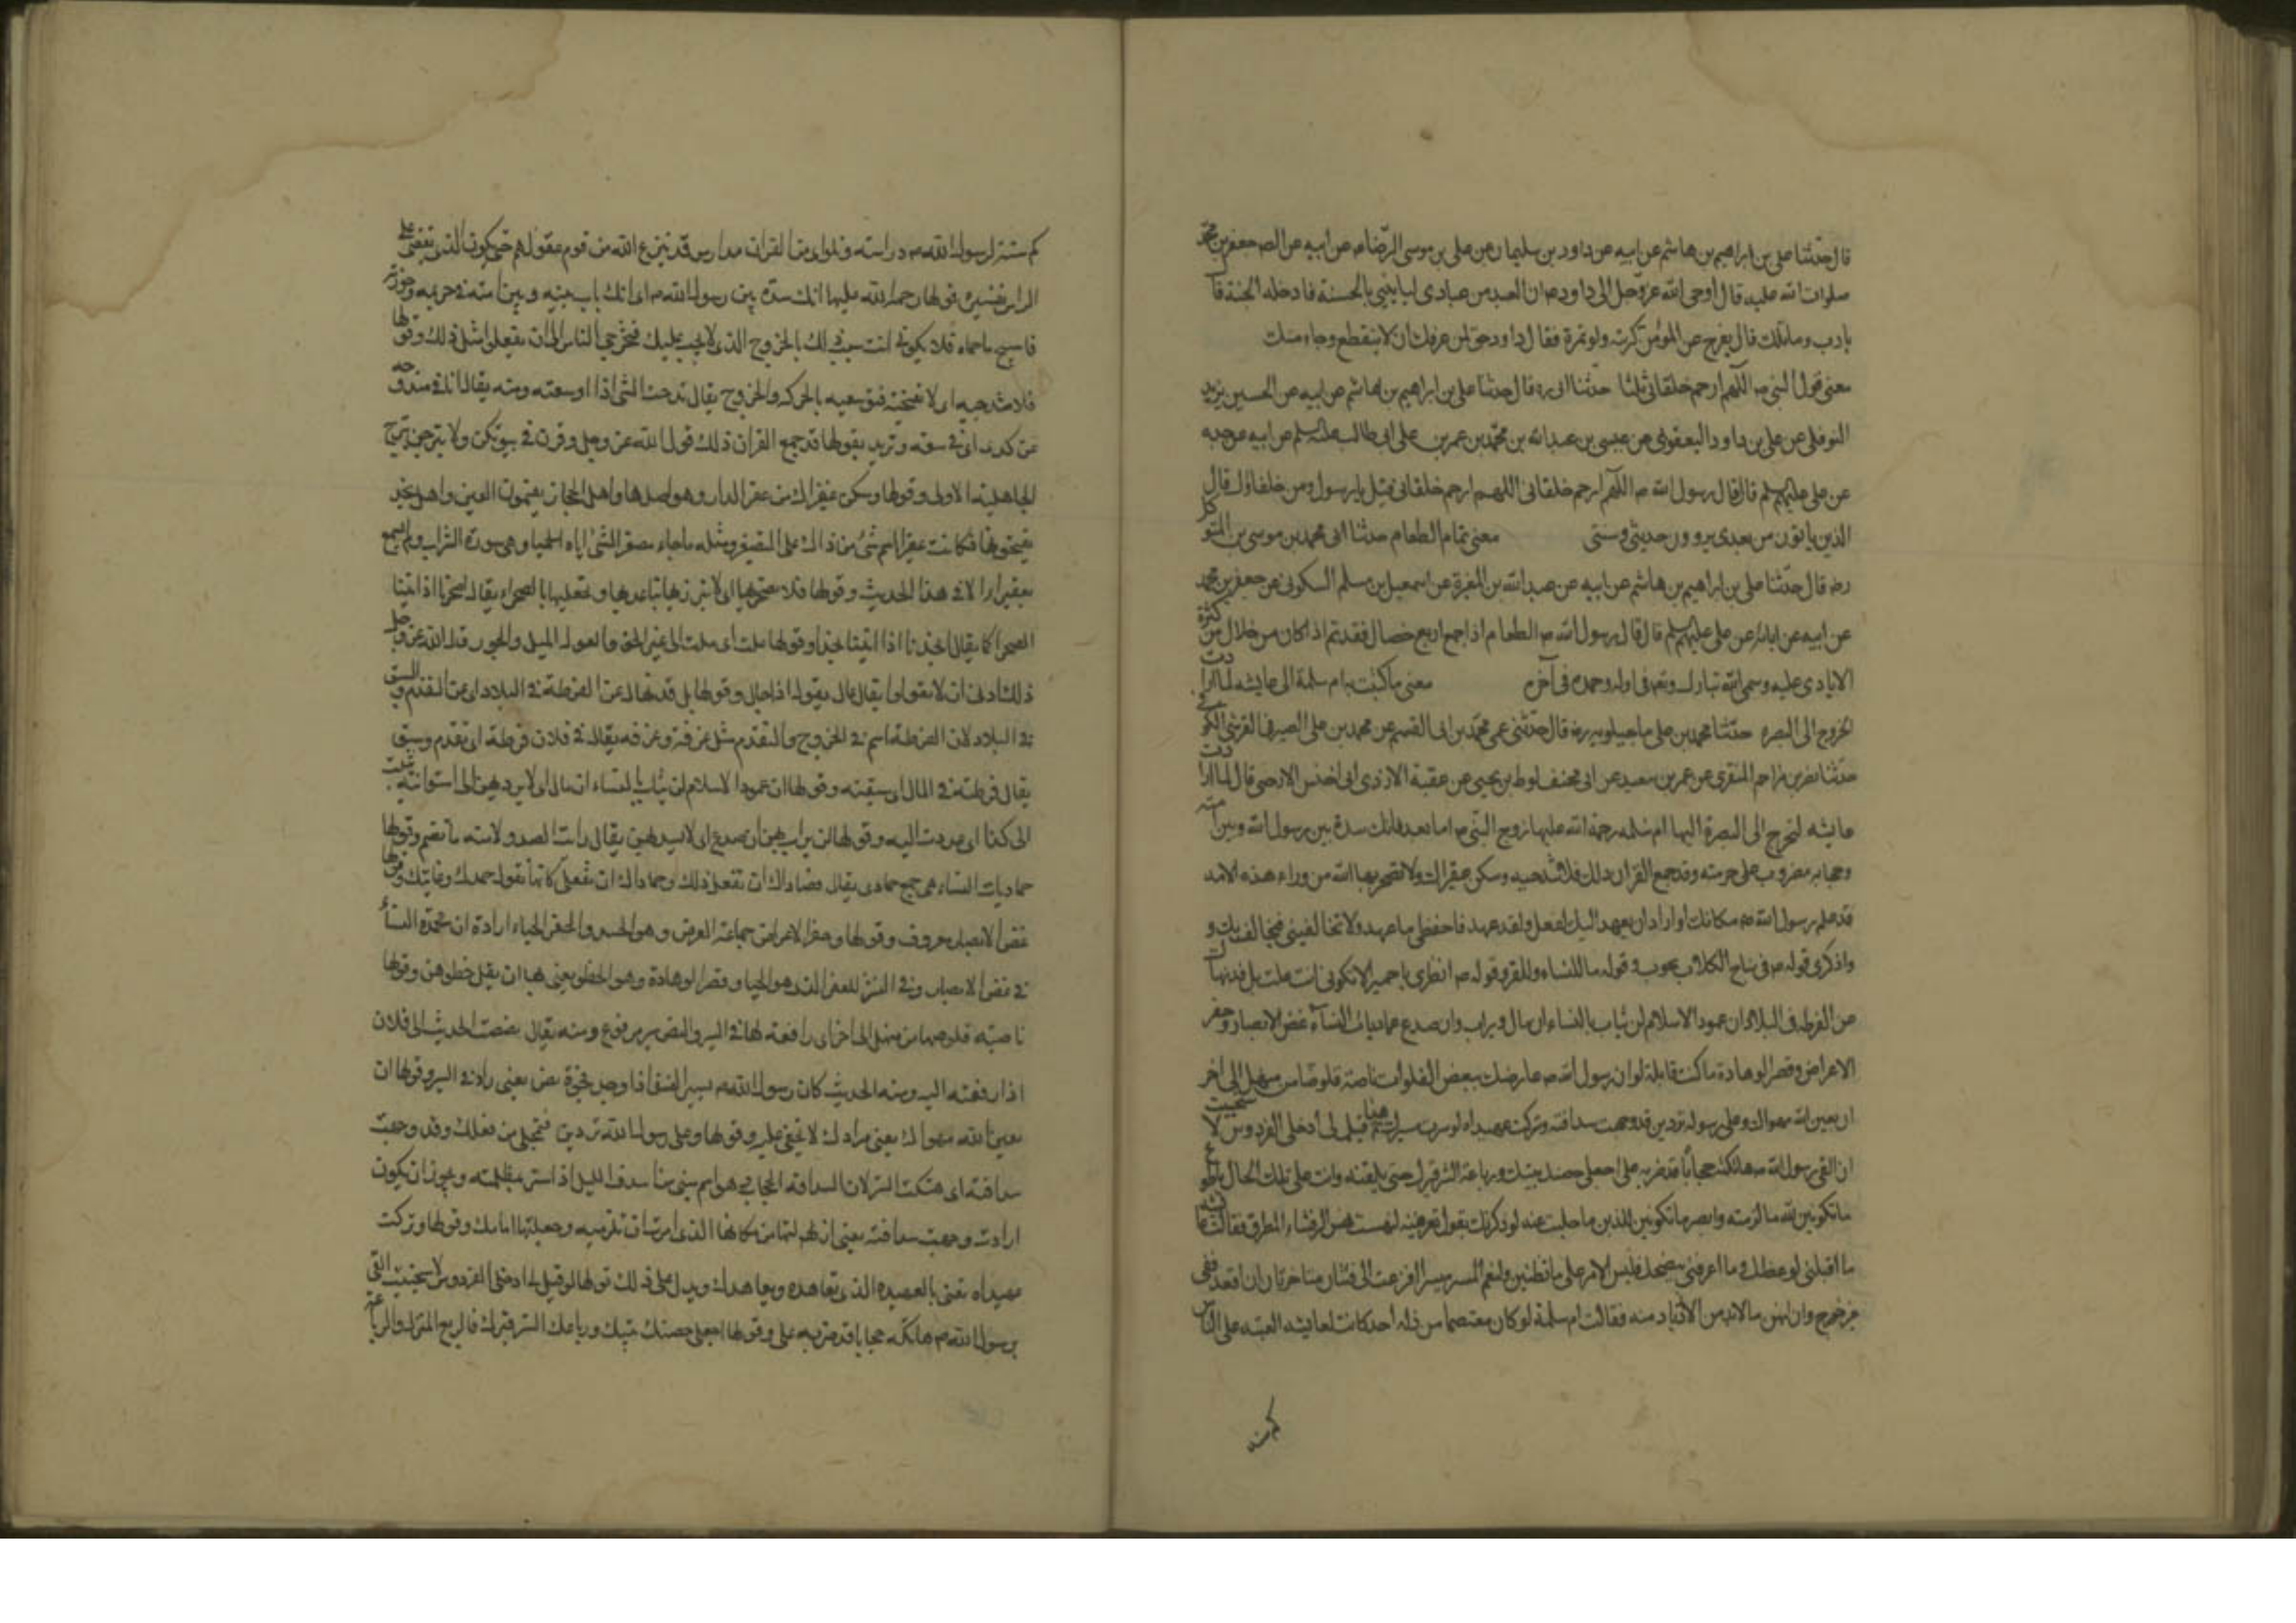 قال حدثنا على بن ابراهيم بن هاشم عن ابيه عن داود بن سليمان عن على بن موسى الرضا عن ابيه عن الص جعفر بن محمد
صلوات الله عليه قال اوحى الله عز وجل الى داود ان العبد من عبادى ليا يتنى بالحسنة فادخله الجنة قا ل
يا رب وما تلك قال يفرج عن المؤمن كربة ولو بتمرة فقال داود حق لمن عرفك ان لا ينقطع رجاءه منك
معنى قول النبى ص اللهم ارحم خلفائى ثلثا حدثنا ابى ره قال حدثنا على بن ابراهيم بن هاشم عن ابيه عن الحسين يزيد
النوفلى عن على بن داود اليعقوبى عن عيسى بن عبدالله بن محمد بن عمر بن على ابى طالب عن ابيه عن جده
عن على عليهم قال قال رسول الله ص اللهم ارحم خلفائى اللهم ارحم خلفائى قيل يا رسول ومن خلفاؤك قال
الذين ياتون من بعدى يروون حديثى وسنتى معنى تمام الطعام حدثنا محمد بن موسى بن المتوكل
رضه قال حدثنا على بن ابراهيم بن هاشم عن ابيه عن عبدالله بن المغيرة عن اسمعيل بن مسلم السكونى عن جعفر بن محمد
عن ابيه عن ابائه عن على عليهم قال قال رسول الله ص الطعام اذا جمع اربع خصال فقد تم اذا كان من حلال من كثرة
الايادى عليه وسمى الله تبارك وتعا فى اوله وحمده فى آخره معنى ما كتبت به ام سلمة الى عايشه لما ارادت
الخروج الى البصره حدثنا محمد بن على ماجيلويه رضه قال حدثنى عمى محمد بن ابى القسم عن محمد بن على الصيرفى القرشى الكوفى
حدثنا نصر بن مزاحم المنقرى عن عمر بن سعيد عن ابى مخنف لوط بن يحيى عن عقبة الازدى قال لما ارادت
عايشه لتخرج الى البصرة اليها ام سلمه رحمة الله عليها زوج النبى ص اما بعد فانك سدة بين رسول الله وبين امته
وحجابه مضروب على حرمته وقد جمع القران ذلك فلا تندحيه وسكن عقيراك ولا تصحريها الله من وراء هذه الامه
قد علم رسول الله ص مكانك لو اراد ان يعهد اليك لفعل ولقد عهد فاحفظى ما عهد ولا تخالفينى فيخالف بك و
واذكرى قوله ص فى نباح الكلاب بحوب وقوله ما للنساء وللغزو وقوله ص انظرى يا حميرا لا تكونى انت علت بل قد نهاك
عن الفرطه فى البلاد ان عمود الاسلام لن يثاب بالنساء ان مال ولن يراب وان صدع حماديات النساء غض الابصار وخفر
الاعراض وقصر الوهادة ما كنت قابلة لو ان رسول الله ص عارضك ببعض الفلوات ناصة قلوصا من منهل الى اخر
ان بعين الله مهواك وعلى رسوله تردين قد وجهت سدافته وتركت عهيداه لو سرت مسيرك هذا ثم قيل لى ادخلى الفردوس لا ستحييت
ان القى رسول الله ص هاتكة حجابا قد ضربه على اجعلى حصنك بيتك ورباعة الستر قبرك حتى تلقينه وانت على تلك الحال
ما تكونين لله ما لزمته وانصر ما تكونين للدين ما جلست عنه لو ذكرتك بقول تعرفينه لنهشت نهش الرقشاء المطرق فقالت
ما اقبلنى لوعظك وما اعرفنى بنصحك فليس الامر على ما تظنين ولنعم المسير مسيرا فزعت الى فئتان متناجزتان ان اقعد ففى
غير حرج وان انهض ما لابد من الازدياد منه فقالت ام سلمة لو كان معتصما من زلة احد كانت لعايشه العتبى على الناس
كم سنة
كم سنة لرسول الله ص دارسته وتلو اى من القران مدارس قد ينزع الله من قوم عقولهم حتى يكون الذى يقضى على
الراس تفسيره قولها رحمة الله عليها انك سدة بين رسول الله ص اى انك باب بينه وبين امته فى حريمه وحوزته
فلا تكونى انت سبب ذلك بالخروج الذى لا يجب عليك فتخرجى الناس الى ان يفعلوا مثل ذلك وقولها
فلا تندحيه اى لا تفتحيه فتوسعيه بالحركة والخروج يقال ندحت الشى اذا اوسعته ومنه يقال انا فى مندوحه
عن كذا اى فى سعة وتريد بقولها قد جمع القران ذلك قول الله عز وجل وقرن فى بيوتكن ولا تبرجن تبرج
الجاهلية الاولى وقولها وسكن عقيراك من عقر الدار وهو اصلها واهل الحجاز يضمون العين واهل نجد
يفتحونها فكانت عقيرا اسم مبنى من ذاك على التصغير ومثله ما جاء مصغرا الثريا والحميا وهى سورة الشراب ولم يسمع
بعقيرا الا فى هذا الحديث وقولها فلا تصحريها اى لا تبرزيها وتباعديها وتجعليها بالصحراء يقال اصحرنا اذا اتينا
الصحرا كما يقال انجدنا اذا اتينا نجدا وقولها علت اى ملت الى غير الحق والعول الميل والجور قال الله عز وجل
ذلك ادنى ان لا تعولوا يقال عال يعول اذا جار وقولها بل قد نهاك عن الفرطة فى البلاد اى عن التقدم والسبق
فى البلاد لان الفرطة اسم فى الخروج والتقدم مثل غرفة وغرفه يقال فى فلان فرطة اى تقدم وسبق
يقال فرطته فى المال اى سبقته وقولها ان عمود الاسلام لن يثاب بالنساء ان مال اى لا يرد بهن الى استوائه ثبت
الى كذا اى عدت اليه وقولها لن يراب بهن ان صدع اى لا يسد بهن يقال رابت الصدع ولامته فانضم وقولها
حماديات النساء هى جمع حمادى يقال قصاراك ان تفعل ذلك وحماداك ان تفعل كانها تقول جهدك وغايتك وقولها
غض الابصار معروف وقولها وخفر الاعراض جماعة العرض وهو الجسد والخفر الحياء ارادت ان محمدة النساء
فى غض الابصار وفى الستر للخفر الذى هو الحيا وقصر الوهادة وهو الخطو يعنى بها ان يقل خطوهن وقولها
ناصة قلوصا من منهل الى اخر اى رافعة لها فى السير والنص سير مرفوع ومنه يقال نصصت الحديث الى فلان
اذا رفعته اليه ومنه الحديث كان رسول الله ص يسير العنق فاذا وجد فجوة نص يعنى زاد فى السير وقولها ان
بعين الله مهواك يعنى مرادك لا يخفى عليه وقولها وعلى رسول الله تردين فتخجلى من فعلك وقد وجهت
سدافته اى هتكت الستر لان السدافة الحجاب هو اسم مبنى من اسدف الليل اذا ستر بظلمته ويجوز ان يكون
ارادت وجهت سدافته يعنى ازلتها من مكانها الذى امرت ان تلزميه وجعلتها امامك وقولها وتركت
عهيداه تعنى بالعهيده الذى تعاهده ويعاهدك ويدل على ذلك قولها لو قيل لى ادخلى الفردوس لاستحييت ان القى
رسول الله ص هاتكة حجابا قد ضربه على وقولها اجعلى حصنك بيتك ورباعك الستر قبرك فالربع المنزل والرباعة